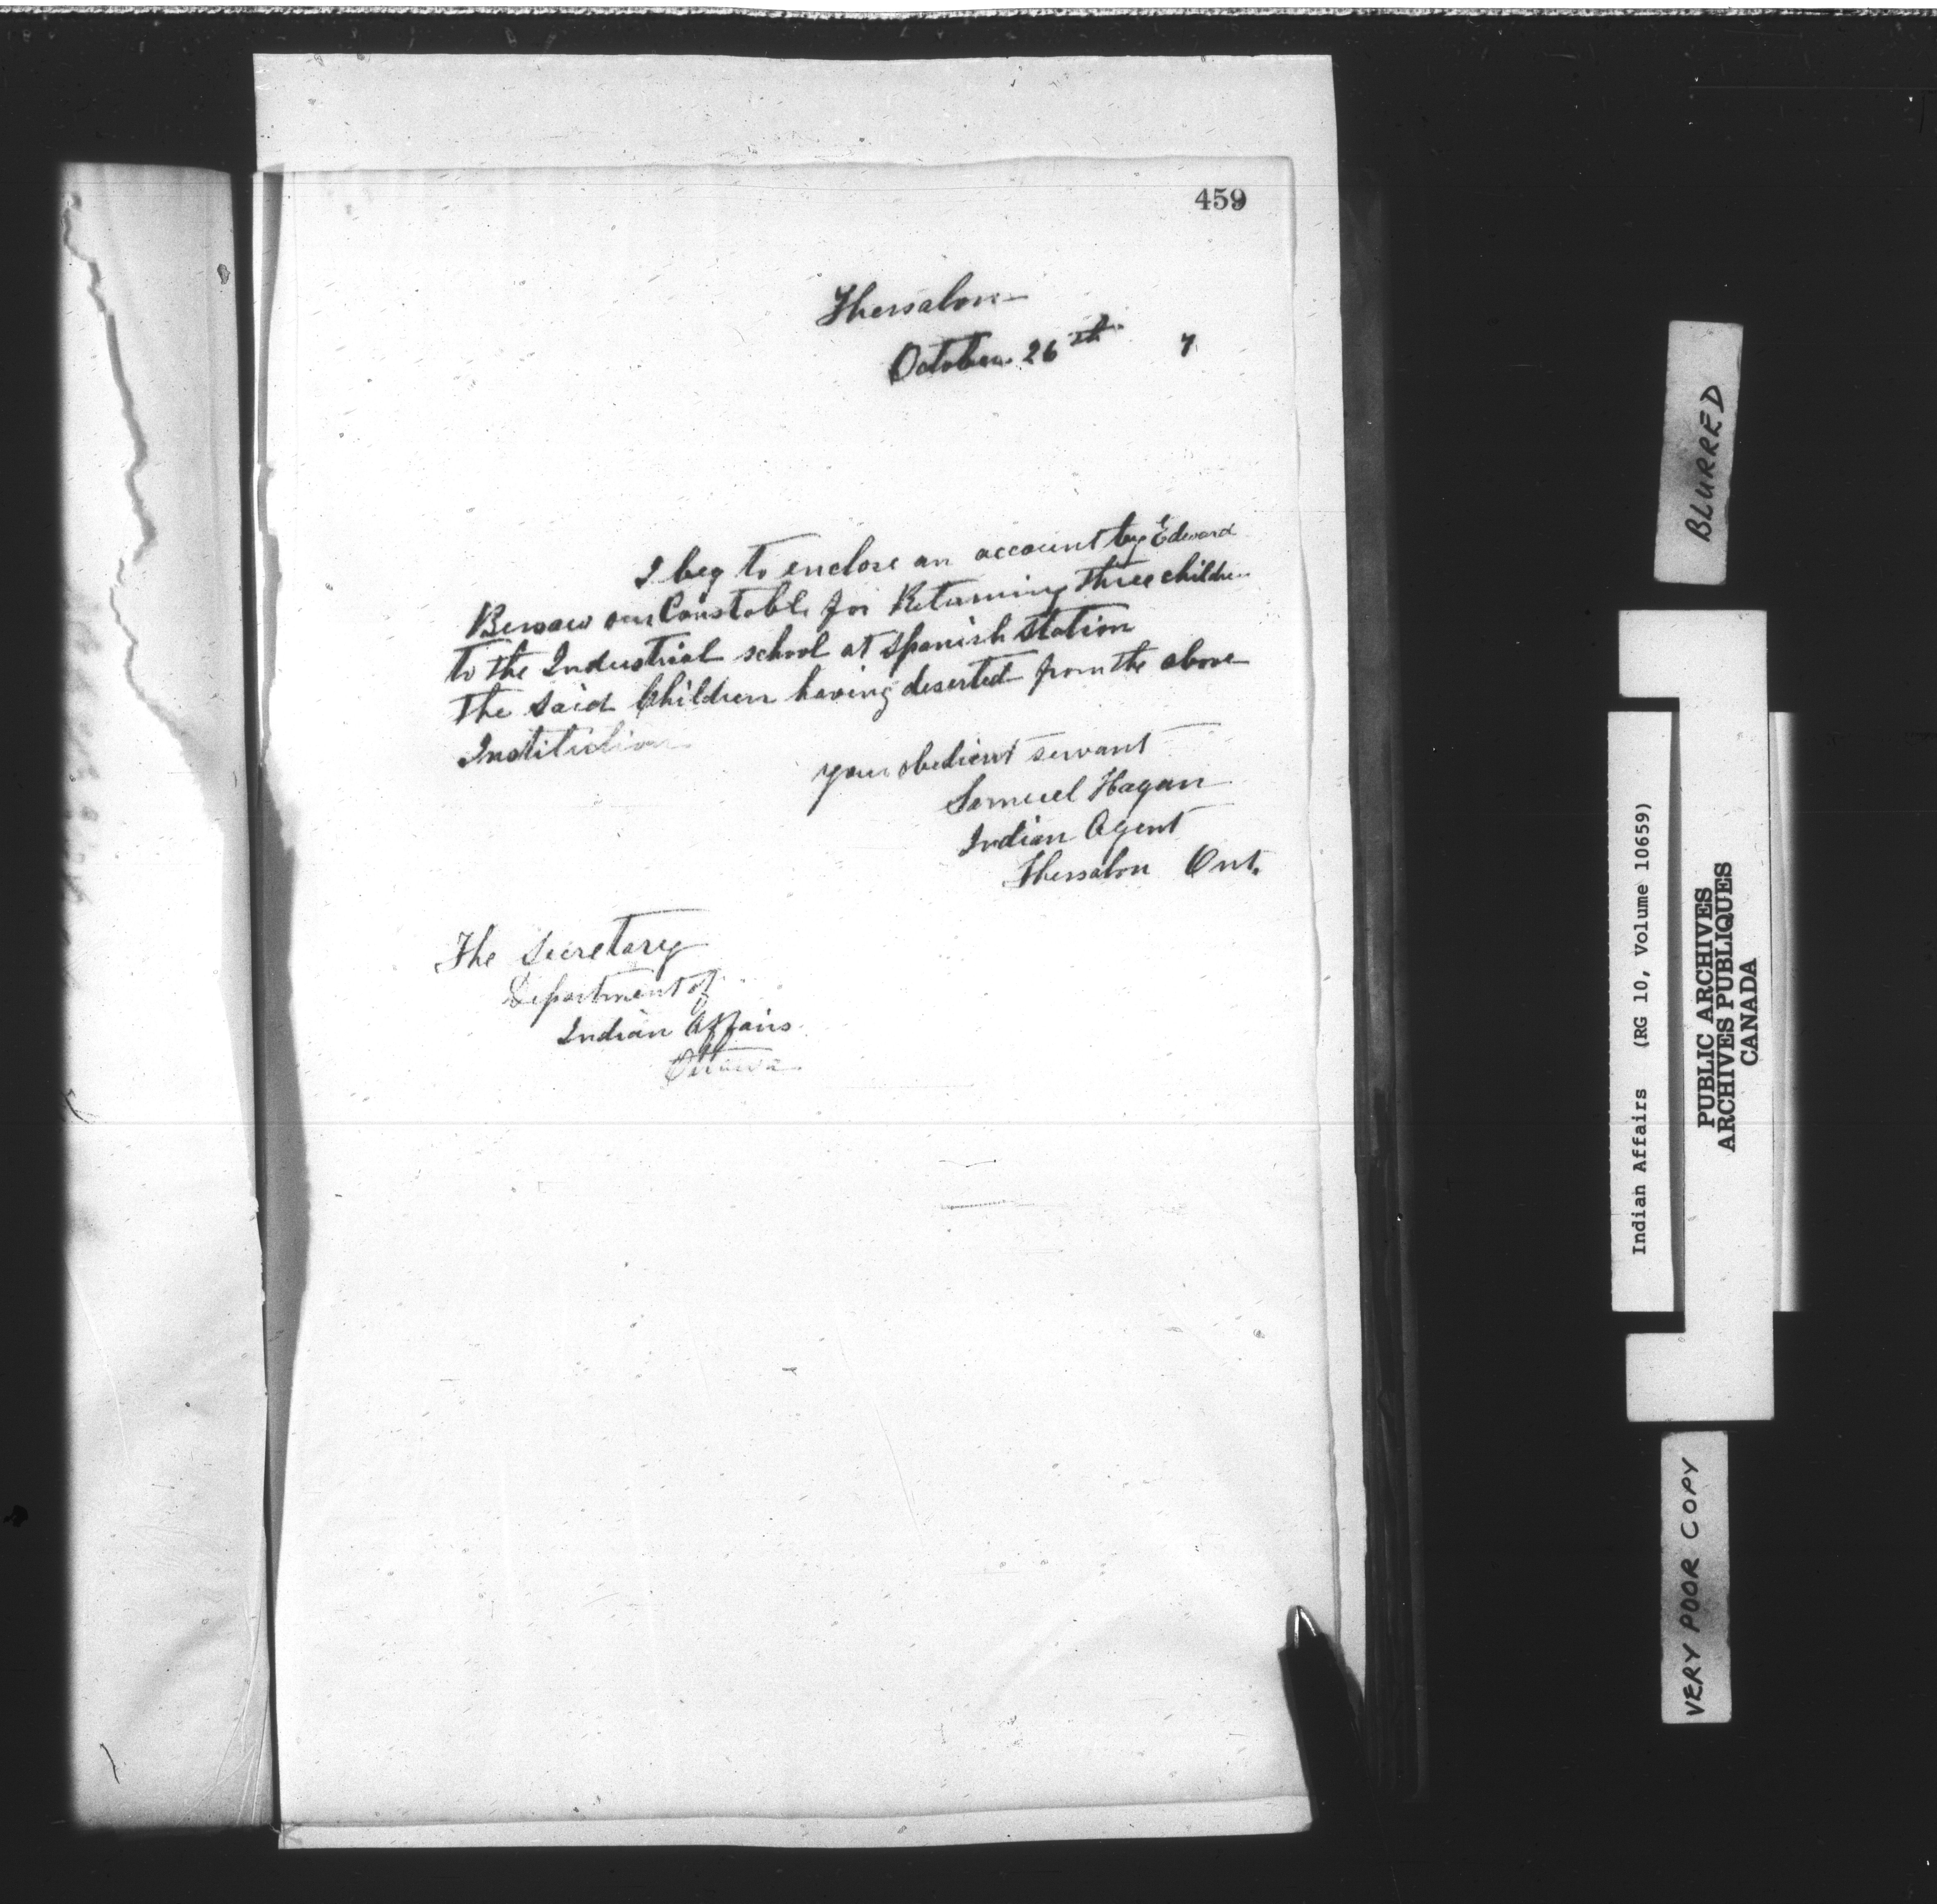 459
Thessalon
October 26th 7
I beg to enclose an account by Edward
Bewsaw our Constable for Returning three children
to the Industrial school at Spanish Station
The said Children having deserted from the above
Institution
your obedient servant
Samuel Hagan
Indian Agent
Thessalon Ont.
The Secretary
Department of
Indian Affairs
Ottawa
BLURRED
Indian Affairs (RG 10, Volume 10659)
PUBLIC ARCHIVES
ARCHIVES PUBLIQUES
CANADA
VERY POOR COPY